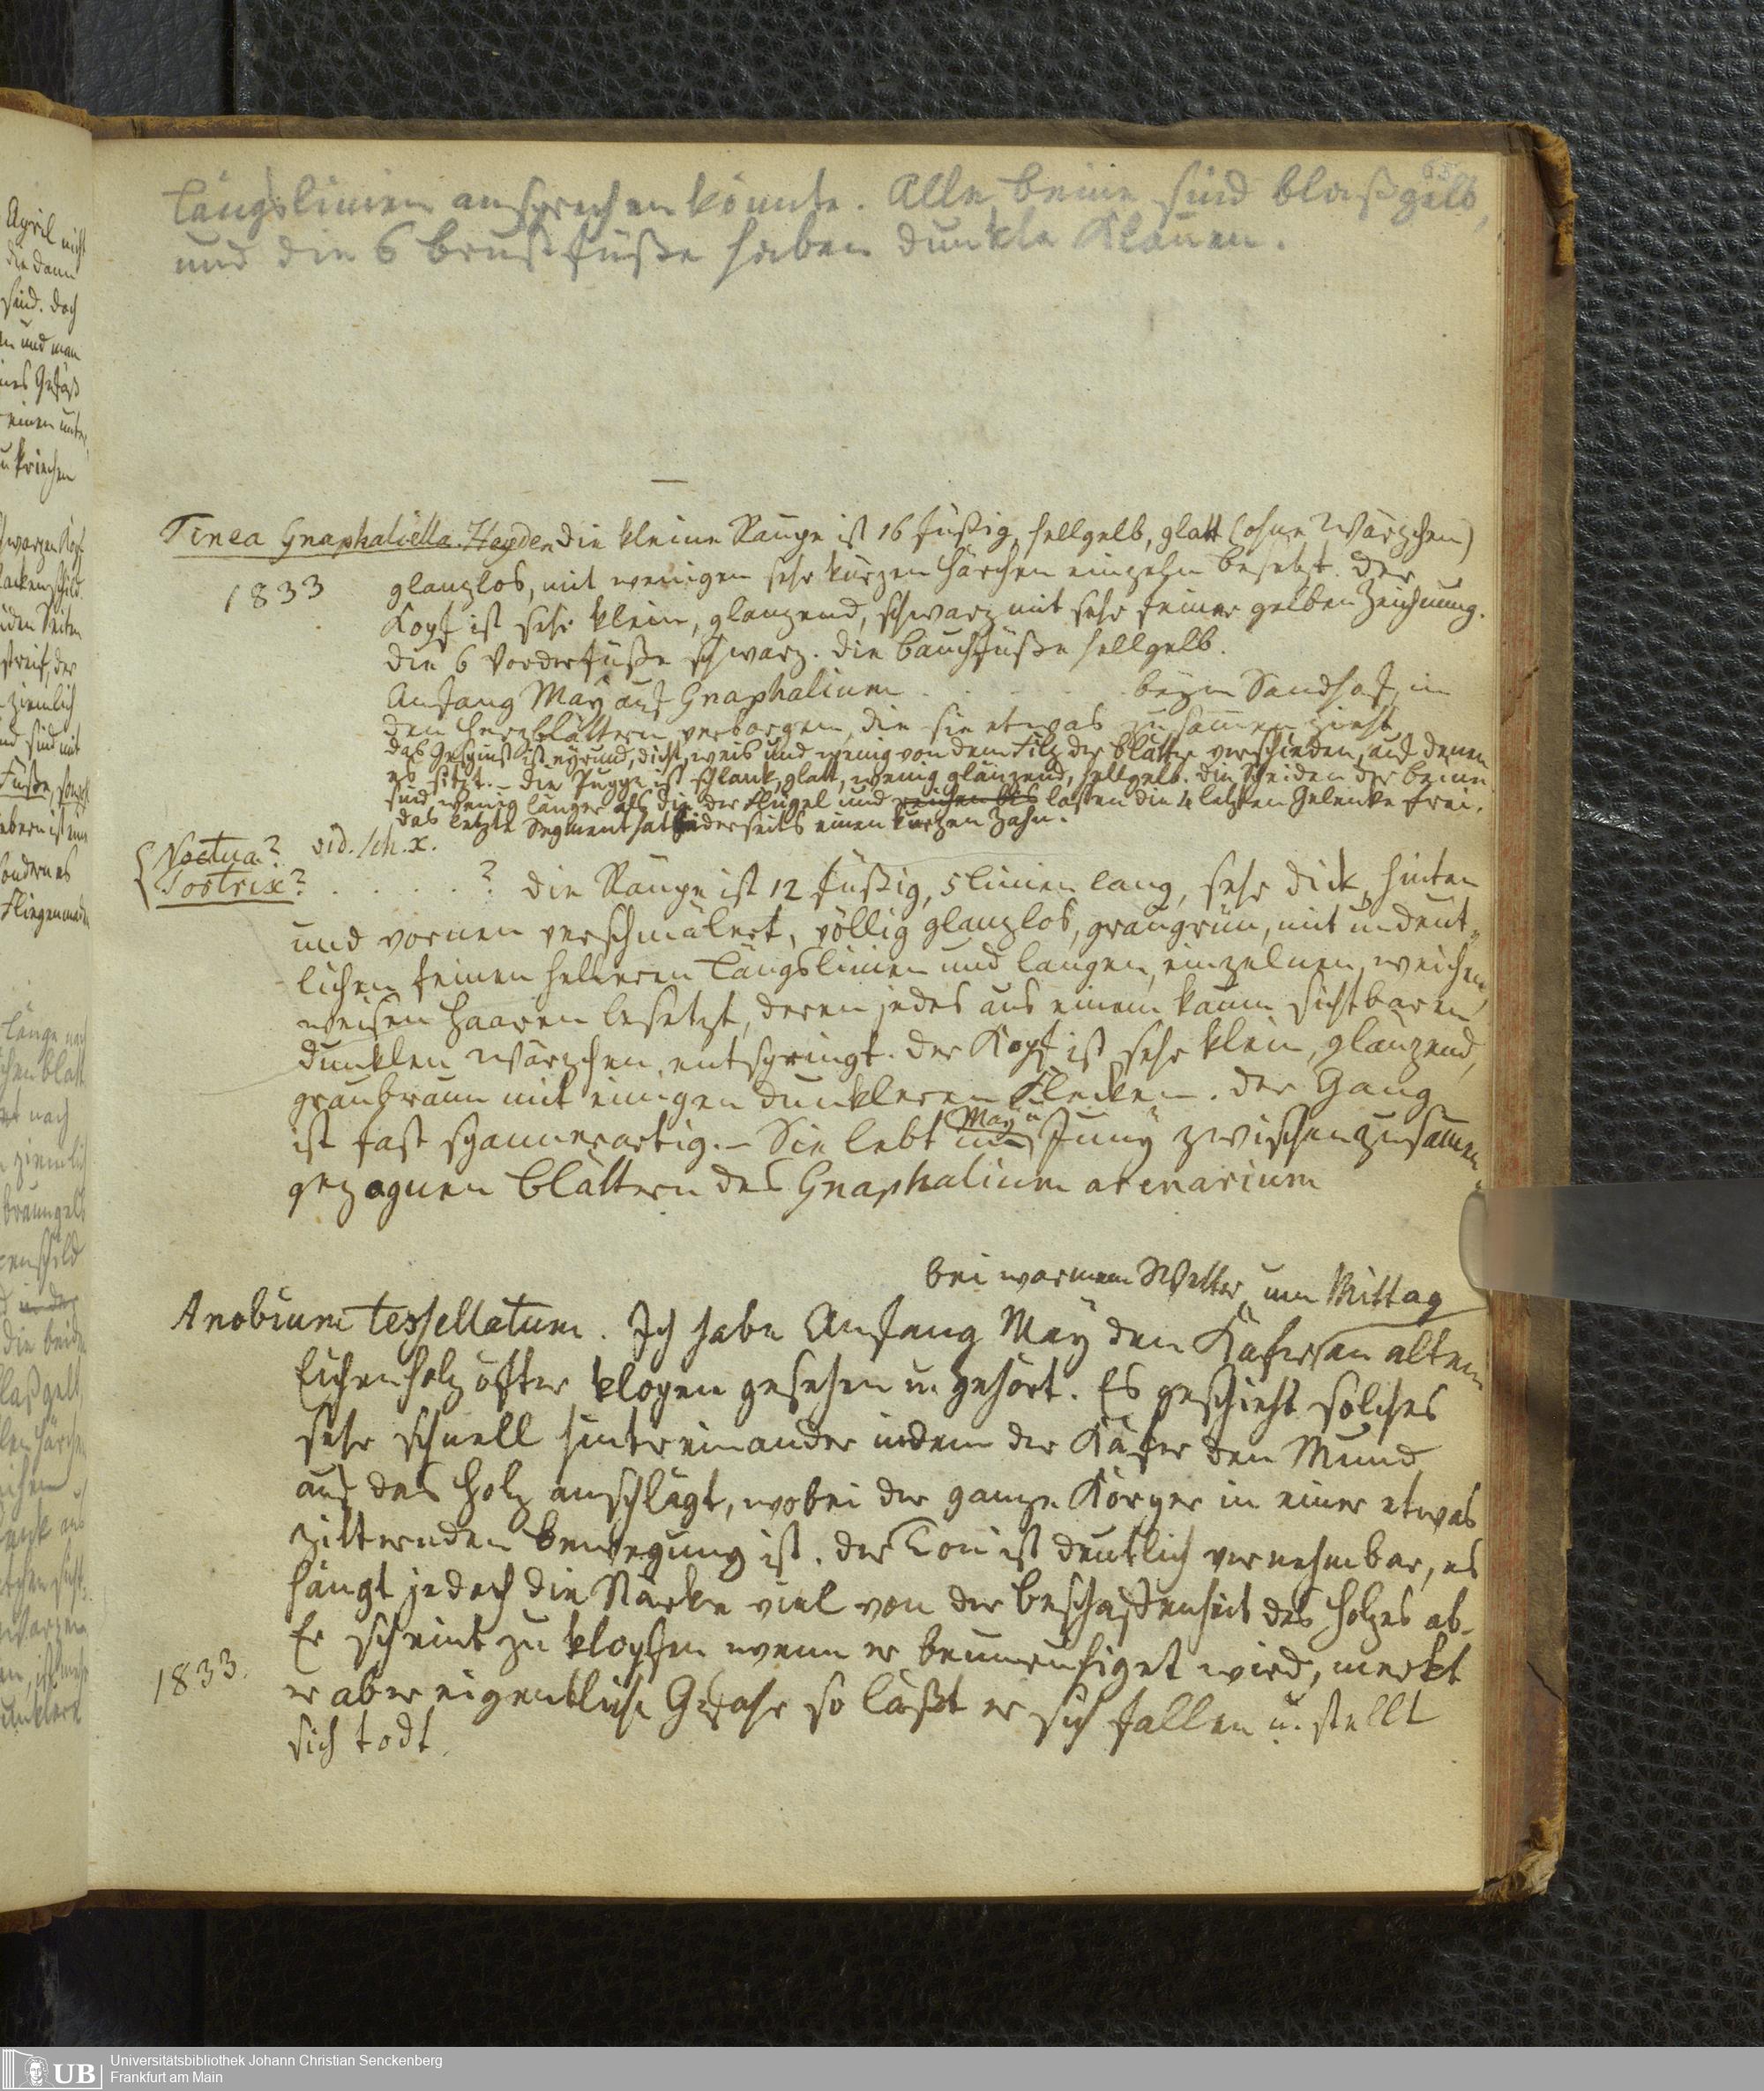 65
Längslinien ansprechen könnte. Alle beine sind blaßgelb,
und die 6 brustfüße haben dunkle Klauen.
Tinea Gnaphaliella Heyden die kleine Raupe ist 16 füßig, hellgelb, glatt (ohne Wärzchen)
1833
glanzlos, mit wenigen sehr kurzen Härchen einzeln besetzt. Der
Kopf ist sehr klein, glanzend, schwarz mit sehr feiner gelben Zeichnung.
die 6 Vorderfüße schwarz. die bauchfüße hellgelb.
Anfang Maÿ auf Gnaphalium . . . . . beÿm Sandhof, in
den Herzblättern verborgen, die sie etwas zusamen zieht
das Gespinst ist eyrund, dicht, weis und wenig von dem Filz der Blätter verschieden, auf denen
es sitzt. – die Puppe ist schlank, glatt, wenig glänzend, hellgelb. die Scheiden der beine
sind wenig länger als die der Flügel und reichen bis laßen die 4 letzten Gelenke frei.
das letzte Segment hat beiderseits einen kurzen Zahn.
Noctua? vid. Sch. x.
Tortrix? . . . . . ? die Raupe ist 12 füßig, 5 linien lang, sehr dick, hinten
und vornen verschmälert, völlig glanzlos, graugrün, mit undeut-
lichen feinen helleren Längslinien und langen, einzelnen, weichen,
weisen Haaren besetzt, deren jedes aus einem kaum sichtbaren
dunklen Wärzchen entspringt. der Kopf ist sehr klein, glänzend,
graubraun mit einigen dunkleren Flecken. der Gang
ist fast spannerartig. – Sie lebt im Maÿ u Junÿ zwischen zusamen
gezognen Blättern des Gnaphalium arenarium
bei warmem Wetter um Mittag
Anobium tessellatum. Ich habe Anfang Maÿ den Käfer an altem
Eichenholz öfter klopen gesehen u. gehört. Es geschieht solches
sehr schnell hintereinander indem der Käfer den Mund
auf das Holz anschlägt, wobei der ganze Körper in einer etwas
zitternden bewegung ist. der Ton ist deutlich vernehmbar, es
hängt jedoch die Stärke viel von der beschaffenheit des Holzes ab.
Er scheint zu klopfen wenn er beunruhiget wird, merkt
1833.
er aber eigentliche Gefahr so läßt er sich fallen u. stellt
sich todt.
Universitätsbibliothek Johann Christian Senckenberg
Frankfurt am Main
UB